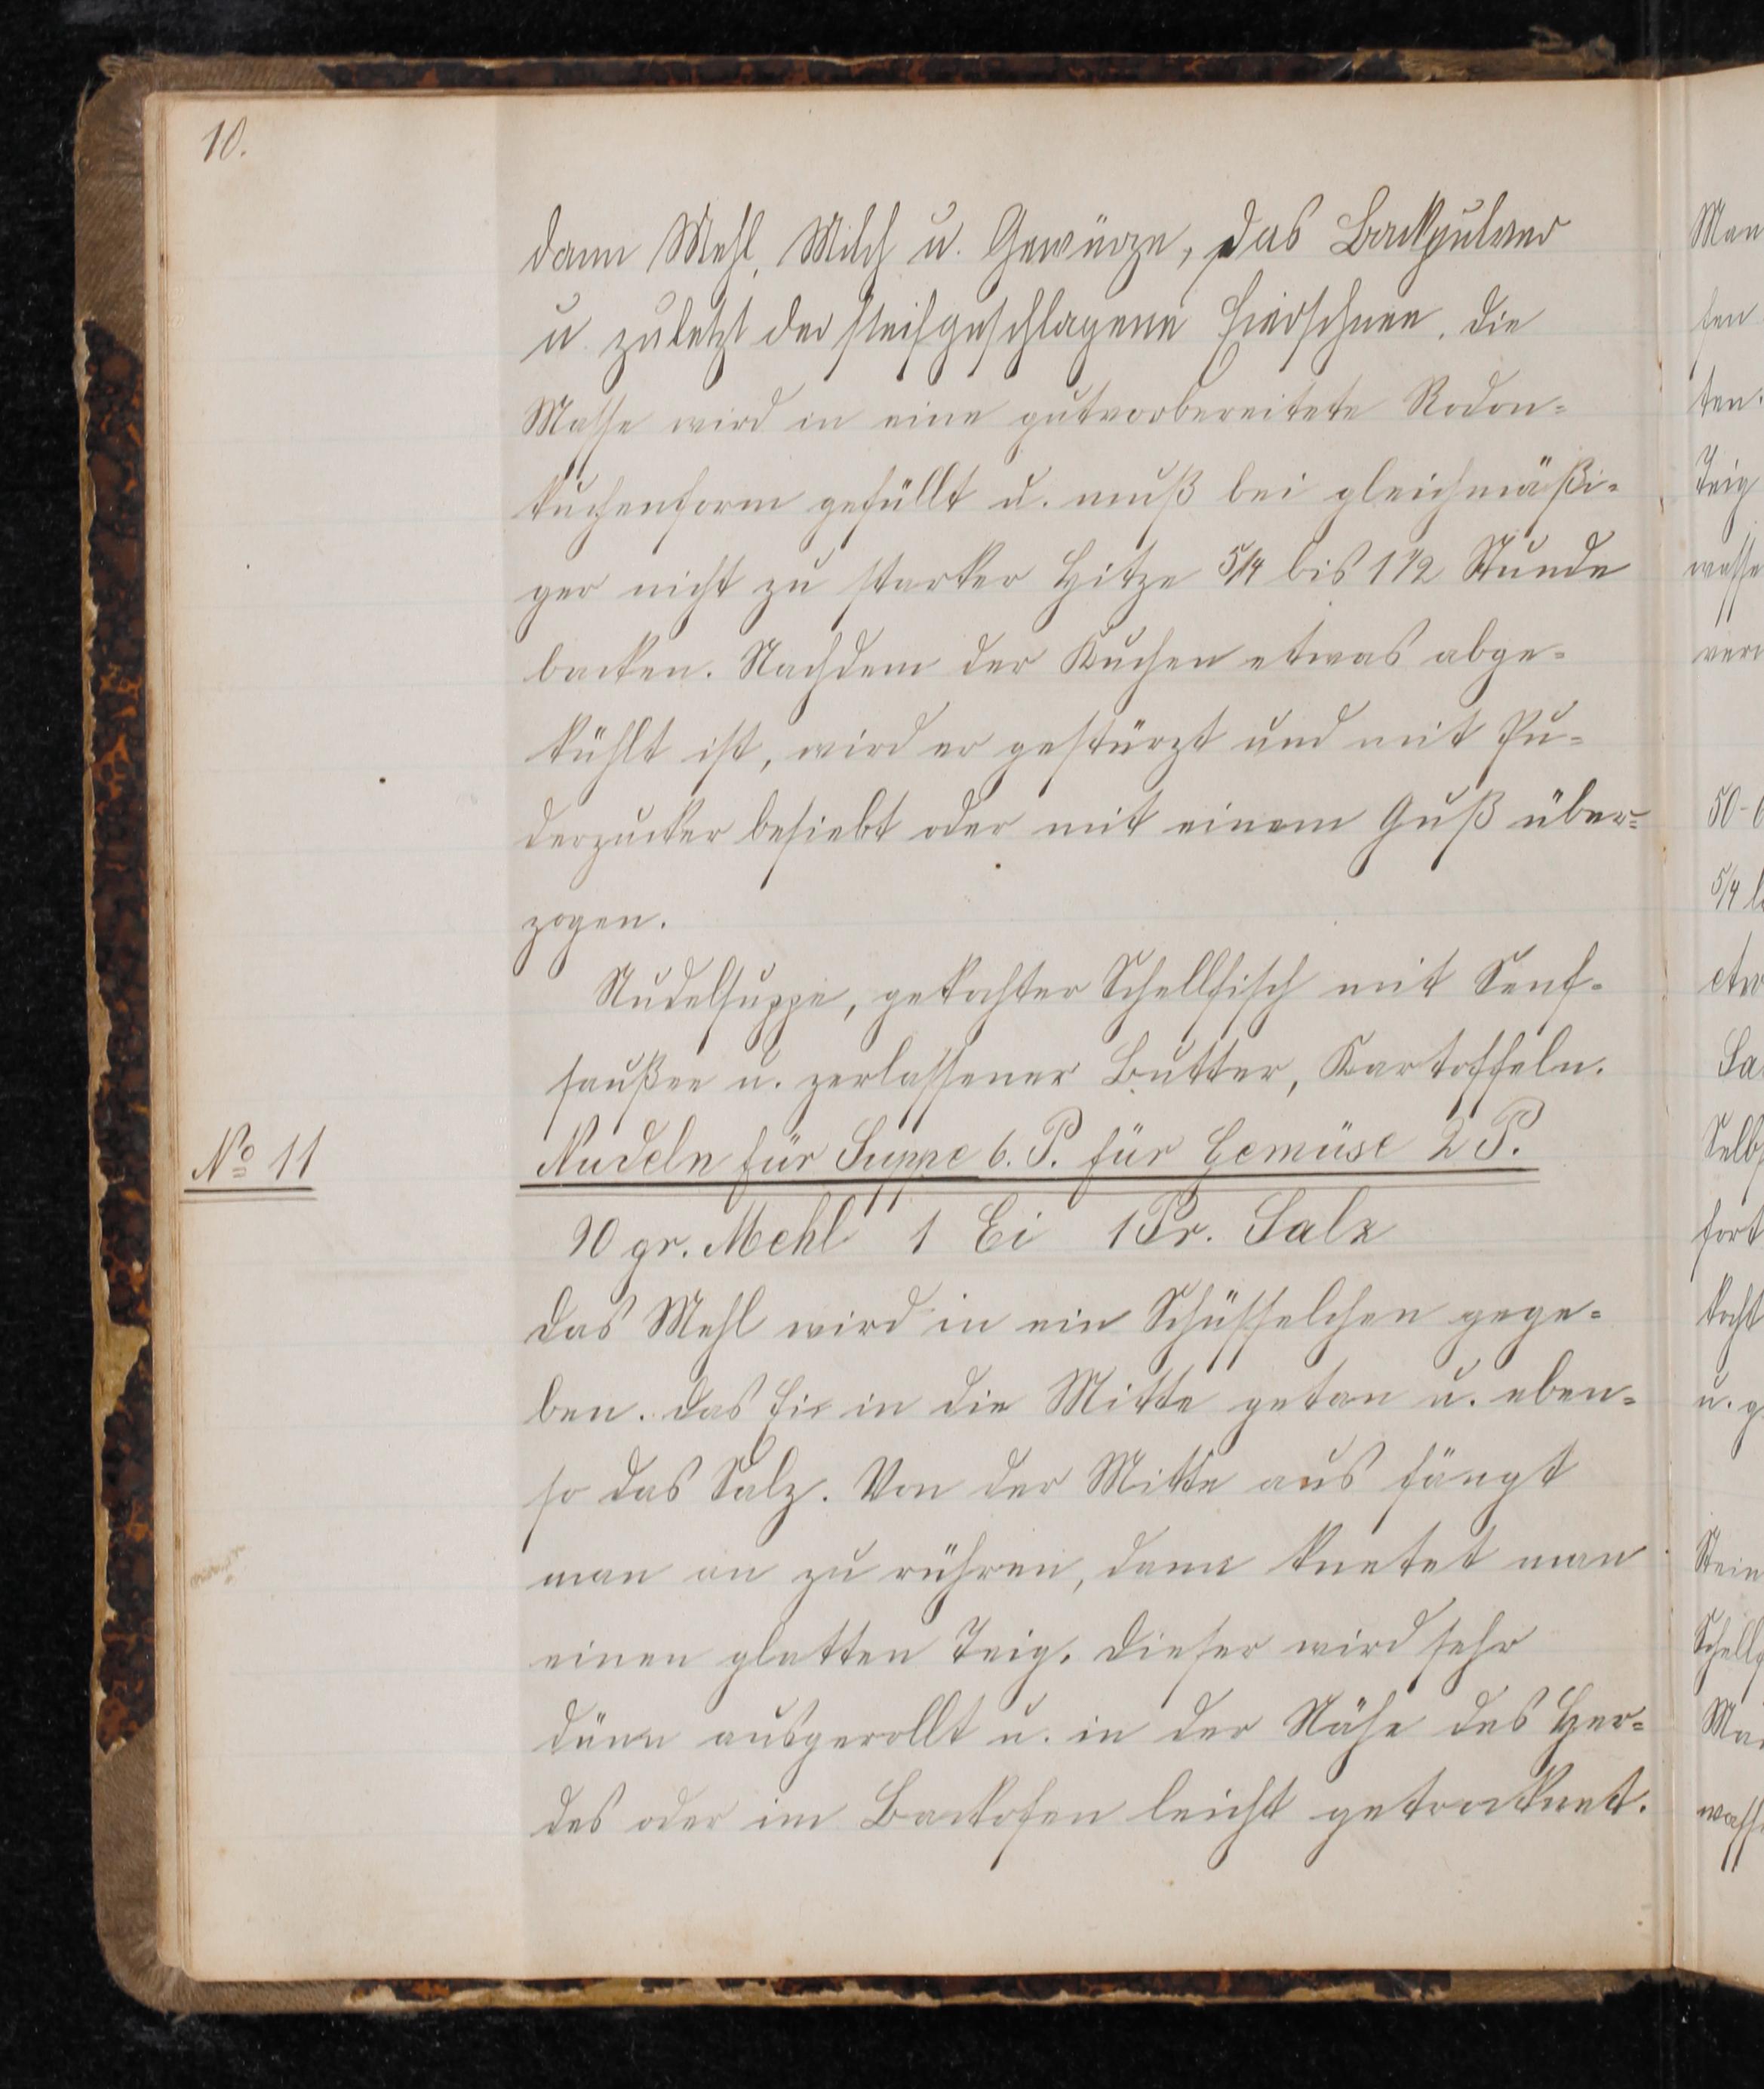 10.
dann Mehl, Milch u. Gewürze, das Backpulver
u. zuletzt der steifgeschlagene Eierschnee. Die
Masse wird in eine gutvorbereitete Rodon=
kuchenform gefüllt u. muß bei gleichmäßi=
ger nicht zu starker Hitze 5/4 bis 1 1/2 Stunde
backen. Nachdem der Kuchen etwas abge=
kühlt ist, wird er gestürzt und mit Pu=
derzucker besiebt oder mit einem Guß über=
zogen.
Nudelsuppe, gekochter Schellfisch mit Senf=
saußee u. zerlassener Butter, Kartoffeln.
No 11 Nudeln für Suppe 6. P. für Gemüse 2 P.
90 gr. Mehl 1 Ei 1 Pr. Salz
Das Mehl wird in ein Schüsselchen gege=
ben. Das Ei in die Mitte getan u. eben=
so das Salz. Von der Mitte aus fängt
man an zu rühren, dann knetet man
einen glatten Teig. Dieser wird sehr
dünn ausgerollt u. in der Nähe des Her=
des oder im Backofen leicht getrocknet.
Man
sen
ten.
Teig
wasse
5/4
etw
Selb
fort
kocht
u. g
Stein
Schellf